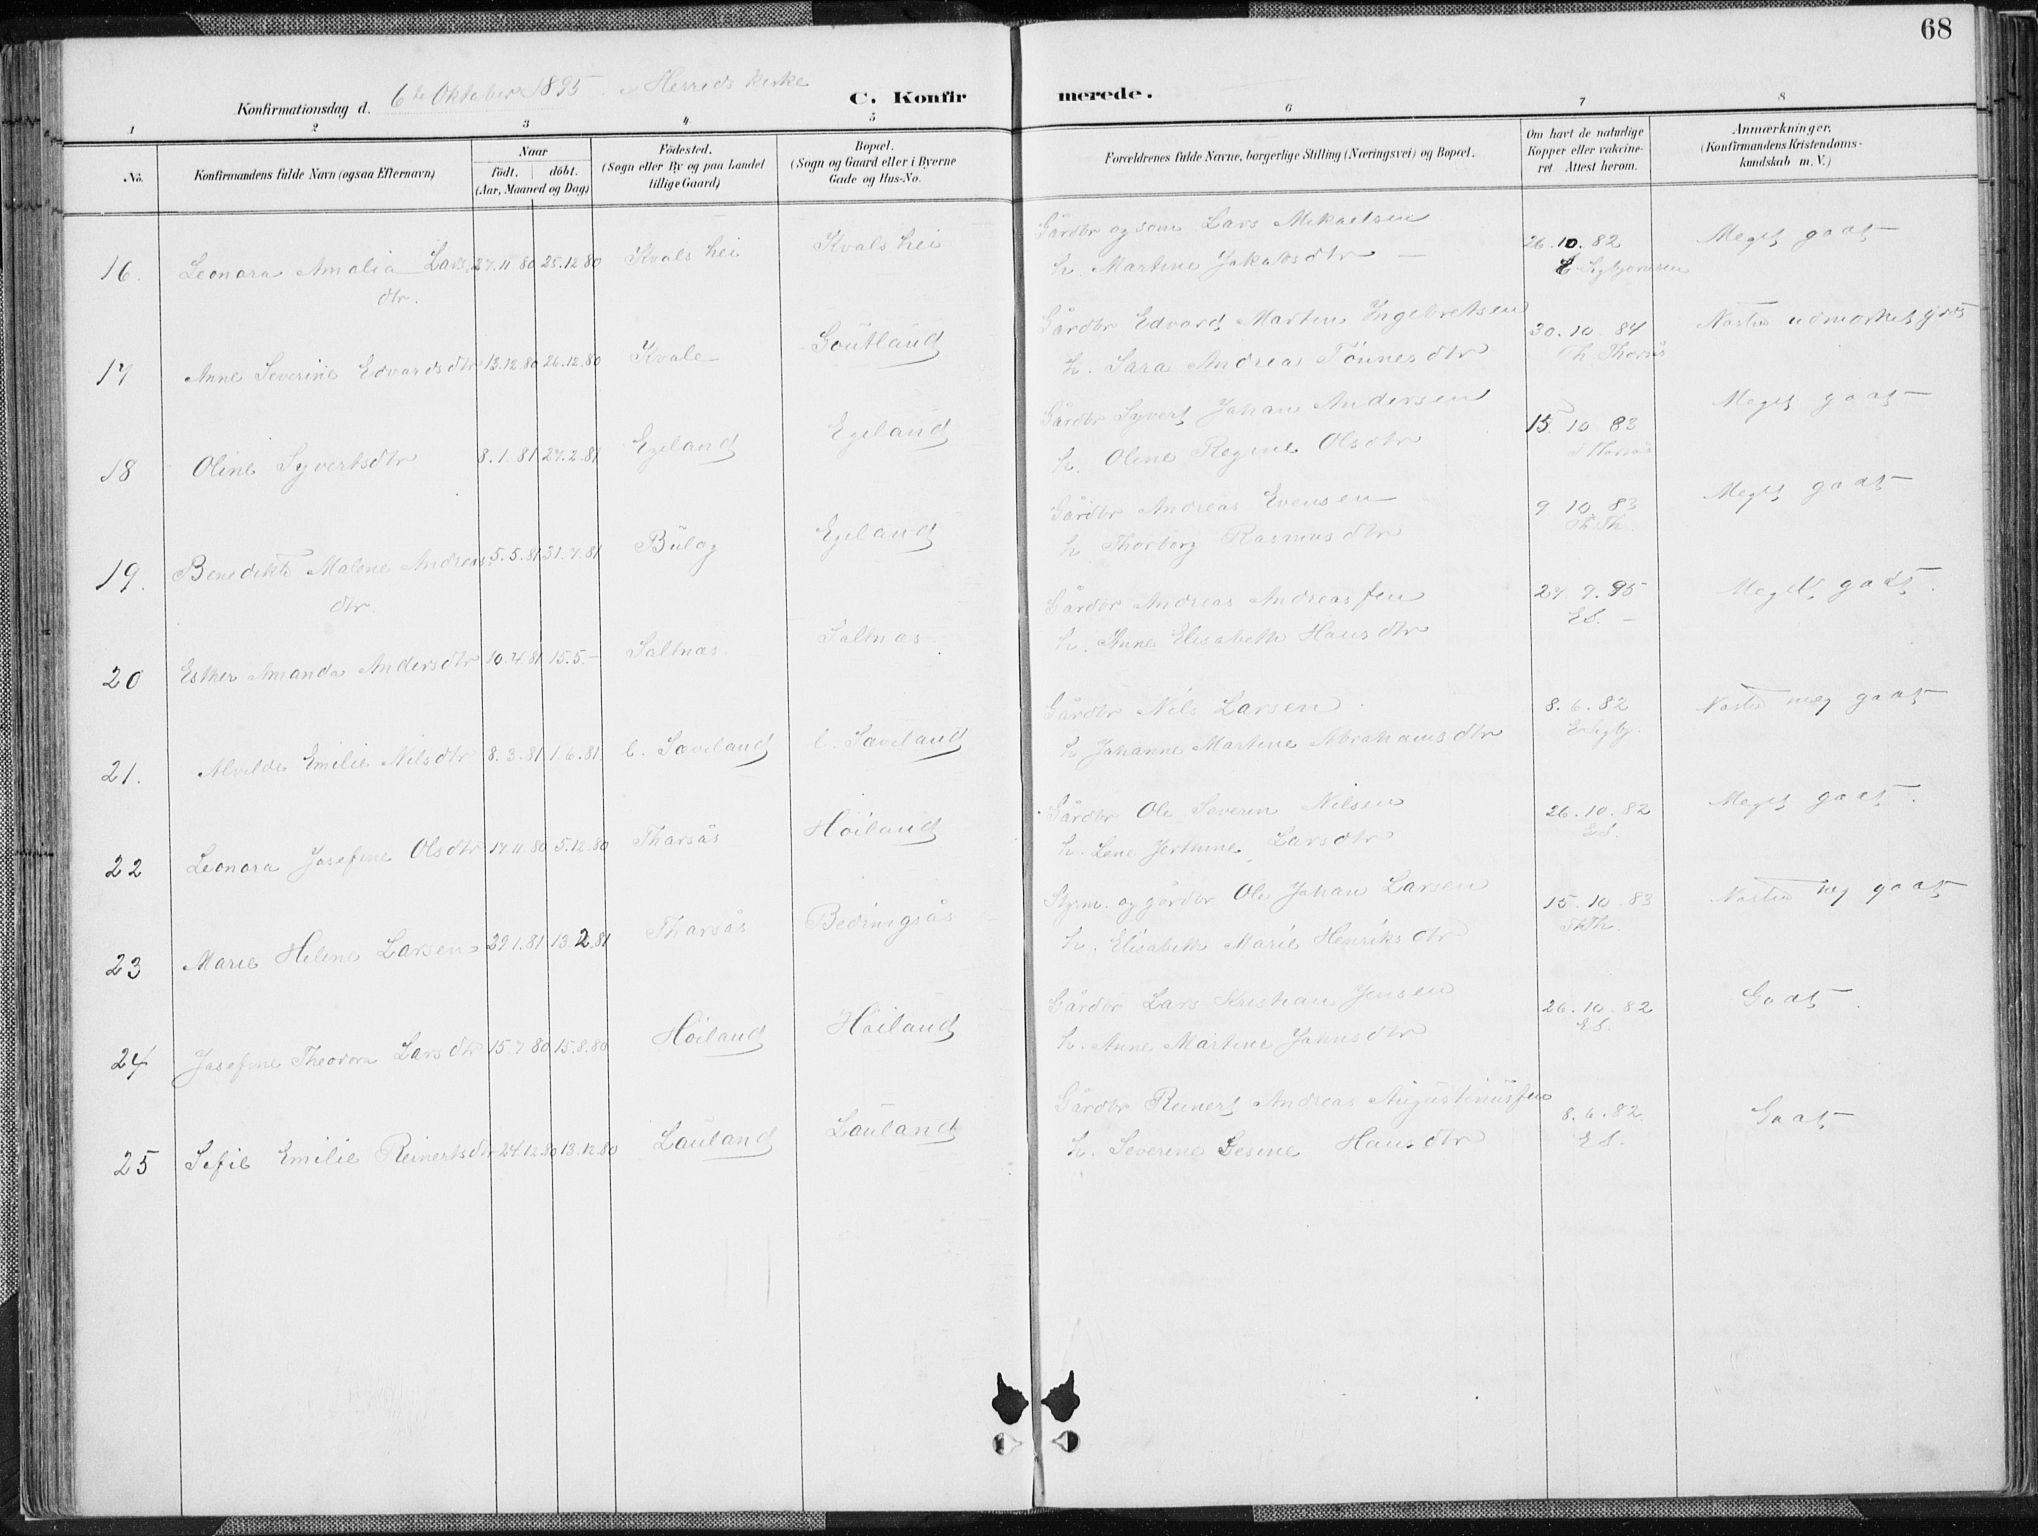 68
Konfirmationsdag d. 6te Oktober 1895 i Herreds kirke
C. Konfirmerede.
1 2 3 4 5 6 7 8
No.
Konfirmandens fulde Navn (ogsaa Efternavn)
Naar
födt. | döbt.
(Aar, Maaned og Dag)
Födested.
(Sogn eller By og paa Landet
tillige Gaard)
Bopæl.
(Sogn og Gaard eller i Byerne
Gade og Hus-No.
Forældrenes fulde Navne, borgerlige Stilling (Næringsvei) og Bopæl.
Om havt de naturlige
Kopper eller vakcine-
ret Attest herom.
Anmærkninger.
(Konfirmandens Kristendoms-
kundskab m. V.)
16. Leonora Amalia Lars 27.11.80 25.12.80 Kvalshei Kvalshei Gårdbr og søm Lars Mikaelsen 26.10.82 Meget godt
dtr. h. Martine Jakobsdtr
17 Anne Severine Edvardsdtr 13.12.80 26.12.80 Kvale Goutland Gårdbr Edvard Martin Ingebretsen 30.10.84
h. Sara Andrea Tönnesdtr Th. Thorsös
18 Oline Syvertsdtr 8.1.81 27.2.81 Egeland Egeland Gårdbr Syvert Johan Andersen 15.10 83 Meget godt
h. Oline Regine Olsdtr
19. Benedikte Malene Andreas 5.5.81 31.7.81 Bülag Egeland Gårdbr Andreas Evensen 9 10.83 Meget godt
dtr. h Thorborg Rasmusdtr Th.Th.
20 Esther Amanda Andersdtr 10.4.81 15.5.— Saltnas Saltnas Gårdbr Andreas Andreassen 27.9.95 Meget godt.
h. Anne Elisabeth Hansdtr ES.
21. Alvilde Emilie Nilsdtr 8.3.81 1.6.81. l. Saveland l. Saveland Gårdbr Nils Larsen 8.6.82 Næsten meg godt
h Johanne Martine Abrahamsdtr
22 Leonora Josefine Olsdtr 17.11.80 5.12.80 Tharsås Höiland Gårdbr Ole Severin Nilsen 26.10.82 Meget godt.
h. Lene Jerthine Larsdtr ES.
23 Marie Helene Larsen 29.1.81 13.2.81 Tharsås Bedringsås Styrm. og gårdbr Ole Johan Larsen 15.10.83 Næsten mg godt
h. Elisabeth Marie Henriksdtr ThTh.
24 Josefine Theodora Larsdtr 15.7.80 15.8.80 Höiland Höiland Gårdbr Lars Kristian Jensen 26.10.82 Godt.
h. Anne Martine Jahnsdtr ES.
25 Sofie Emilie Reinertsdtr 24.12.80 13.12.80 Lauland Lauland Gårdbr Reinert Andreas Augustinussen 8.6.82 Godt
h. Severine Gesine Hansdtr ES.